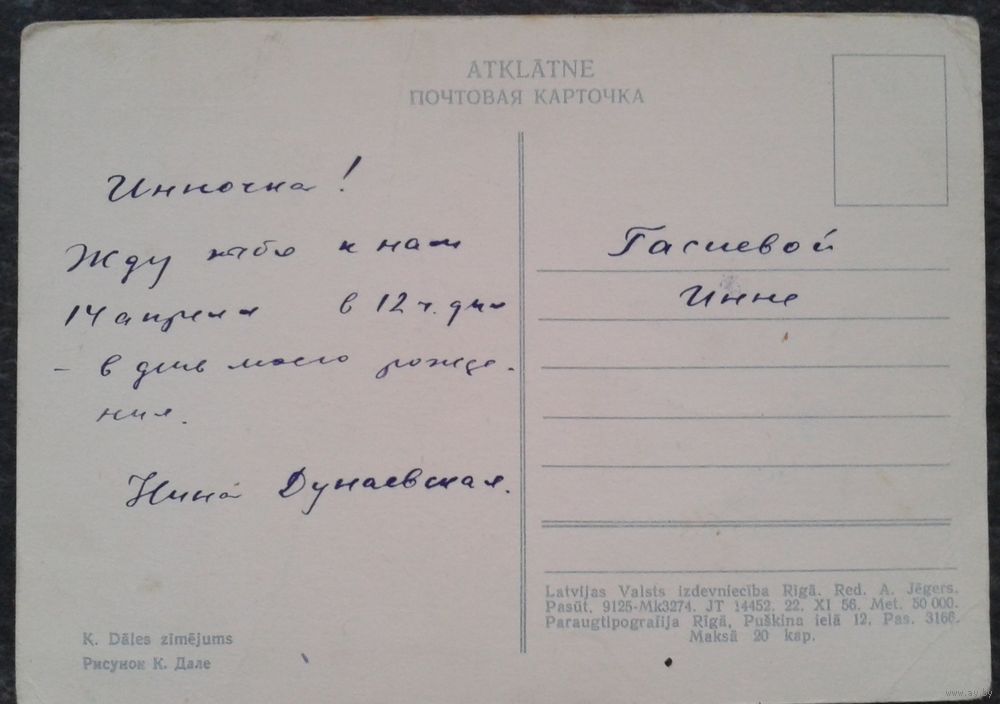 ATKLĀTNE
ПОЧТОВАЯ КАРТОЧКА
Инночка!
Жду тебя к нам
14 апреля в 12 ч. дня
- в день моего рожде-
ния.
Нина Дунаевская.
Гасиевой
Инне
K. Dāles zīmējums
Рисунок К. Дале
Latvijas Valsts izdevniecība Rīgā. Red. A. Jēgers.
Pasūt. 9125-Mk3274. JT 14452. 22. XI 56. Met. 50 000.
Paraugtipogrāfija Rīgā, Puškina ielā 12. Pas. 3166.
Maksā 20 kap.
www.ay.by